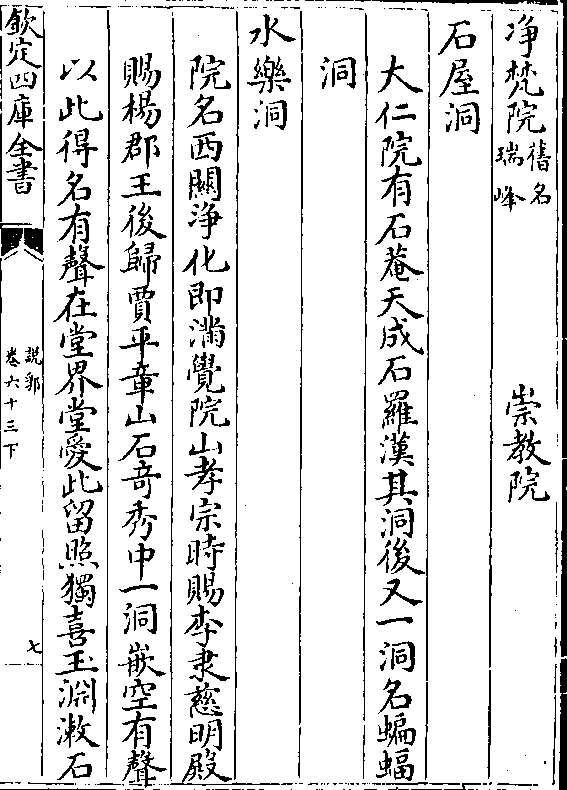 净梵院舊名瑞峰 崇教院
石屋洞
大仁院有石菴天成石羅漢其洞後又一洞名蝙蝠
洞
水樂洞
院名西關淨化即滿覺院山孝宗時賜李隶慈明殿
賜楊郡王後歸賈平章山石奇秀中一洞嵌空有聲
以此得名有聲在堂界堂愛此留照獨喜玉淵漱石
欽定四庫全書
說郛
卷六十三下
七